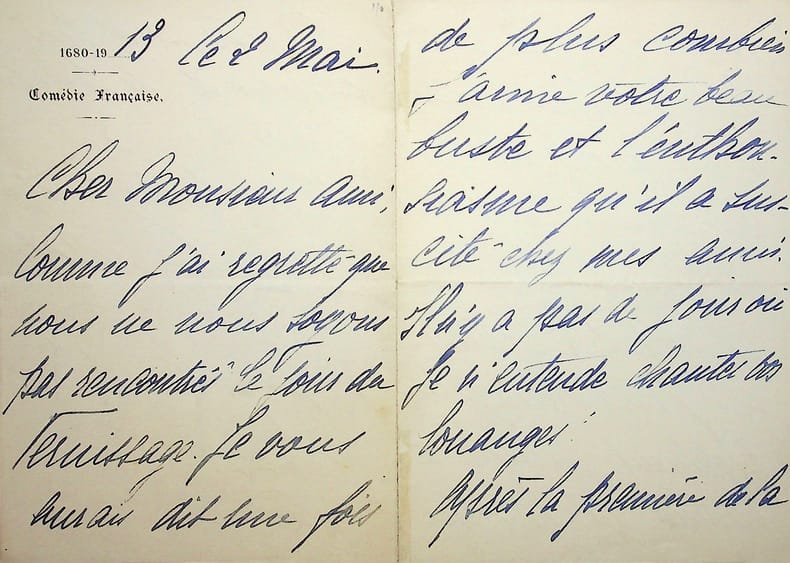 1680-19 13 Ce 2 Mai.
Comédie Française.
Cher Monsieur Ami,
Comme j'ai regretté que
nous ne nous soyons
pas rencontrés le jour du
Vernissage. Je vous
aurais dit une fois
de plus combien
j'aime votre beau
buste et l'enthou-
siasme qu'il a sus-
cité chez mes amis.
Il n'y a pas de jour où
je n'entende chanter vos
louanges!
Après la première de la